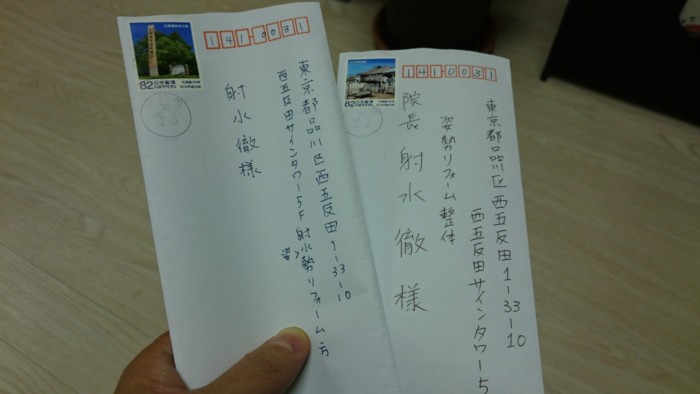 1410031
東京都品川区西五反田1-33-10
西五反田サインタワー5F 射水勢リフォーム方
姿
射水徹様
82 日本郵便
1410031
東京都品川区西五反田1-33-10
西五反田サインタワー5
姿勢リフォーム整体
院長 射水徹様
82 日本郵便